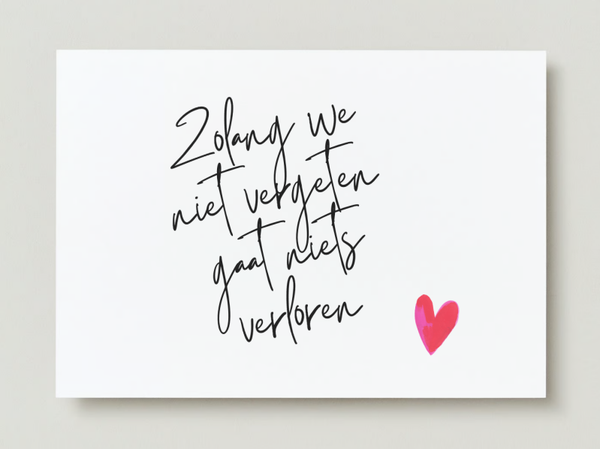 Zolang we
niet vergeten
gaat niets
verloren